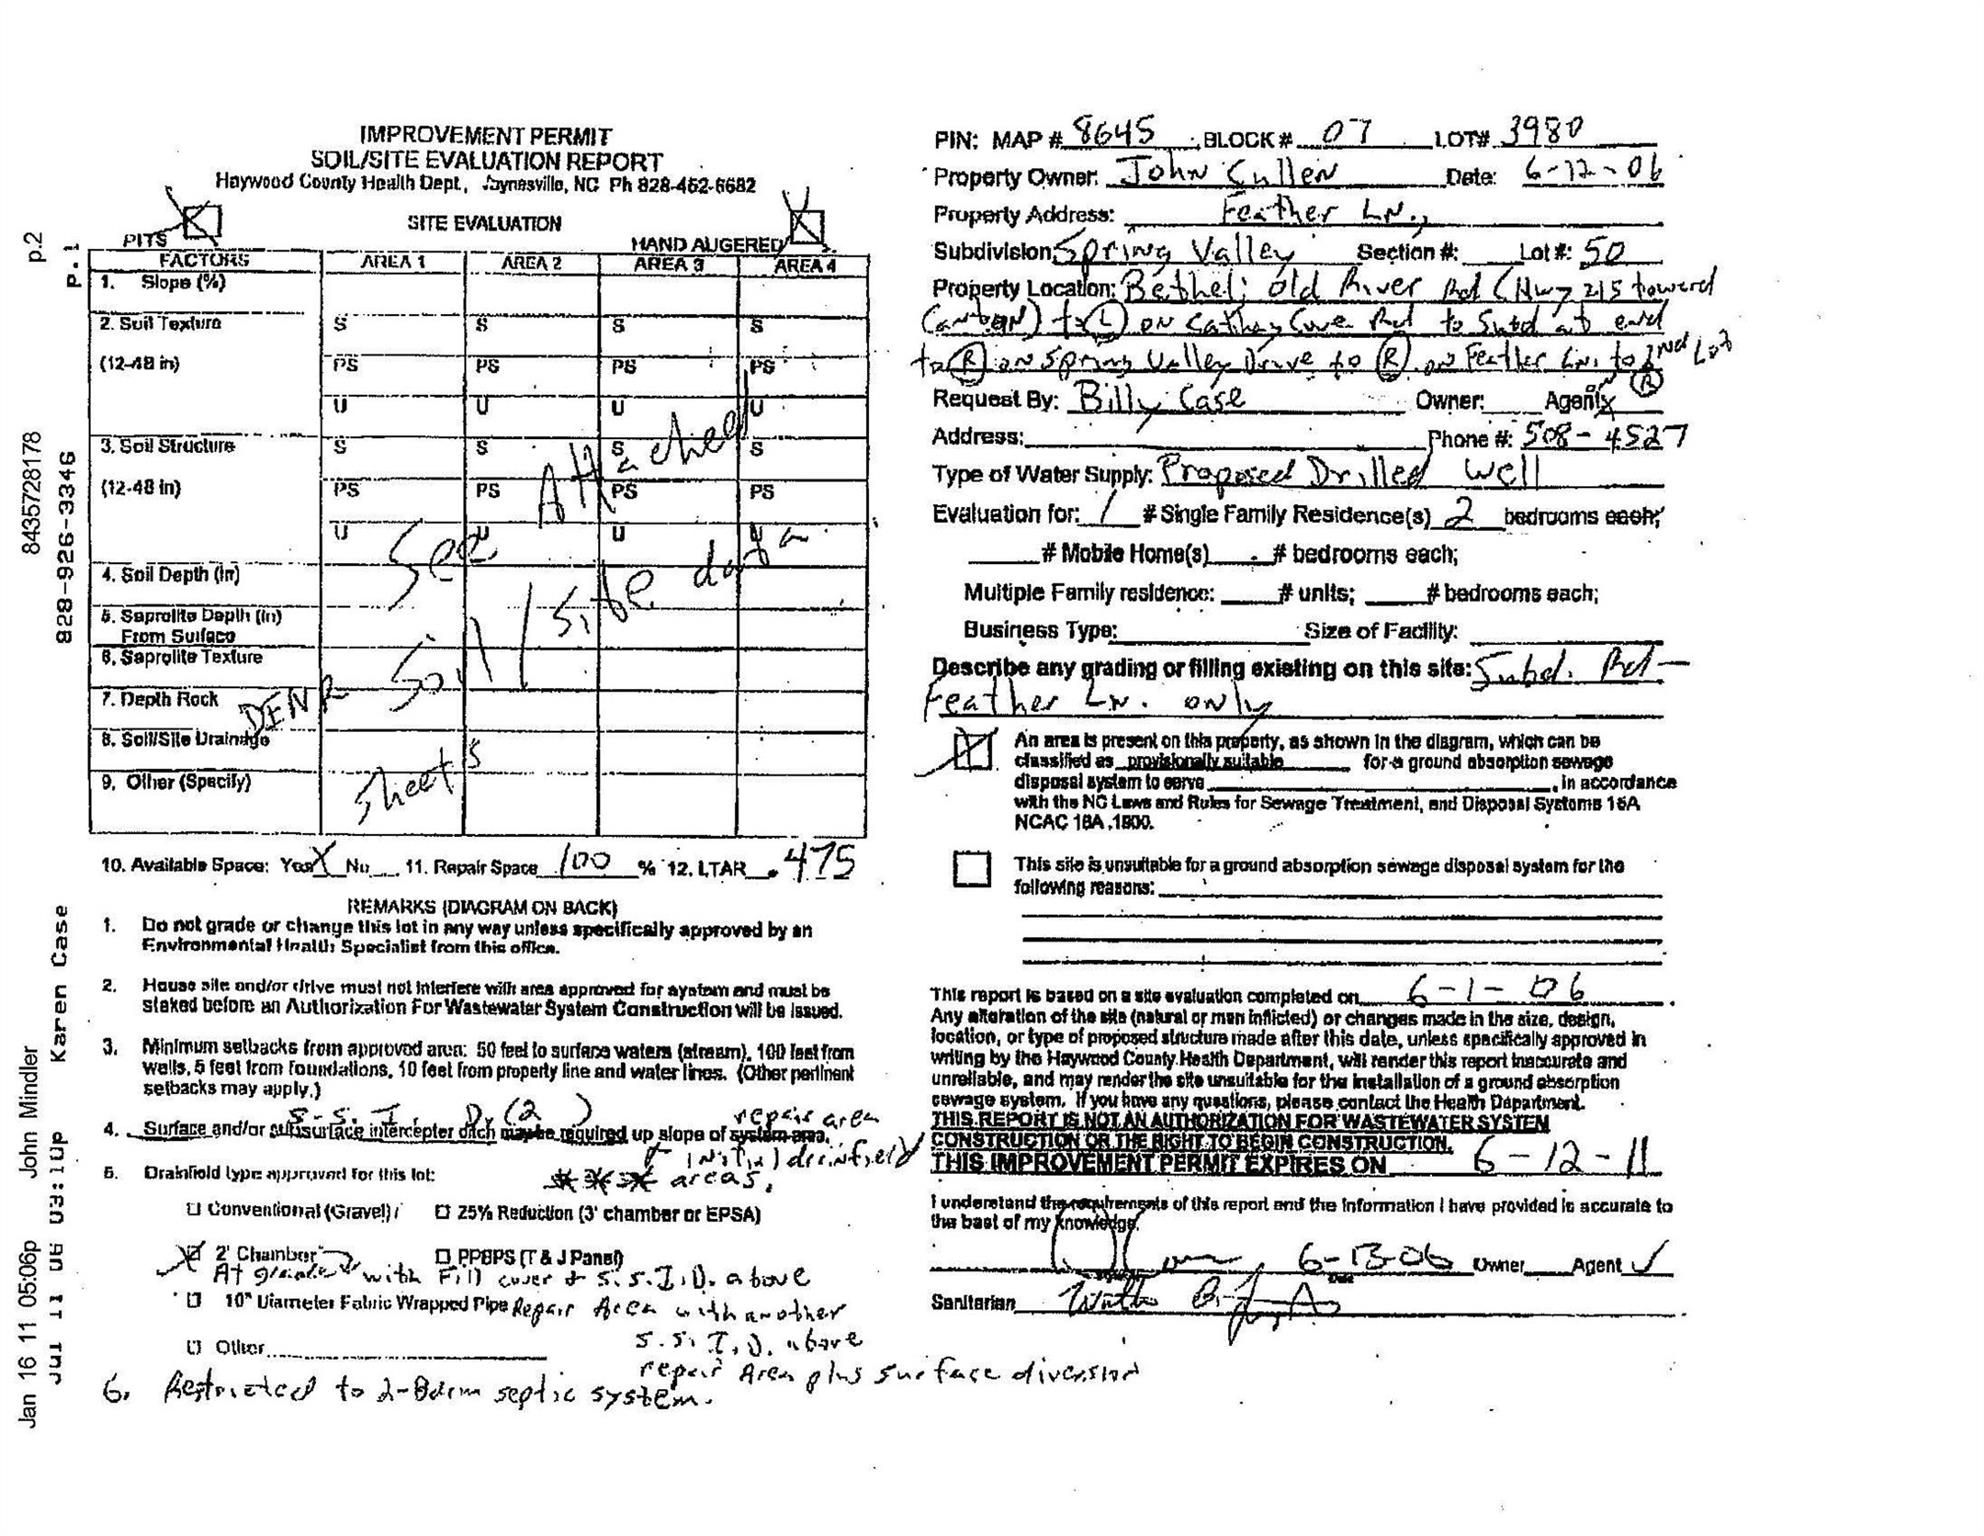 p.2
P.1
84357281​78
828-926-3346
Karen Case
John Mindler
Jul 11 06 03:10p
Jan 16 11 05:06p
IMPROVEMENT PERMIT
SOIL/SITE EVALUATION REPORT
Haywood County Health Dept., Waynesville, NC Ph 828-452-6682
SITE EVALUATION
PITS
HAND AUGERED
FACTORS AREA 1 AREA 2 AREA 3 AREA 4
1. Slope (%)
2. Soil Texture S S S S
(12-48 in) PS PS PS PS
U U U U
3. Soil Structure S S S S
(12-48 in) PS PS PS PS
U U U U
4. Soil Depth (in)
5. Saprolite Depth (in)
From Surface
6. Saprolite Texture
7. Depth Rock
8. Soil/Site Drainage
9. Other (Specify)
See Attached
DENR Soil/site data
sheets
10. Available Space: Yes X No 11. Repair Space 100 % 12. LTAR .475
REMARKS (DIAGRAM ON BACK)
1. Do not grade or change this lot in any way unless specifically approved by an
Environmental Health Specialist from this office.
2. House site and/or drive must not interfere with area approved for system and must be
staked before an Authorization For Wastewater System Construction will be issued.
3. Minimum setbacks from approved area: 50 feet to surface waters (stream), 100 feet from
wells, 5 feet from foundations, 10 feet from property line and water lines. (Other pertinent
setbacks may apply.)
S.S. I. D. (2) repair area
4. Surface and/or subsurface intercepter ditch maybe required up slope of system area.
+ initial drainfield
5. Drainfield type approved for this lot: *** areas.
Conventional (Gravel) 25% Reduction (3' chamber or EPSA)
X 2' Chamber PPBPS (T & J Panel)
At grade with Fill cover + S.S.I.D. above
10" Diameter Fabric Wrapped Pipe Repair Area with another
S.S.I.D. above
Other
repair Area plus surface diversion
6. Restricted to 2-Bdrm septic system.
PIN: MAP # 8645 BLOCK # 07 LOT# 3980
Property Owner: John Cullen Date: 6-12-06
Property Address: Feather LN.,
Subdivision: Spring Valley Section #: Lot #: 50
Property Location: Bethel; Old River Rd (Hwy 215 toward
Canton) to (L) on Cathey Cove Rd to Subd at end
to (R) on Spring Valley Drive to (R) on Feather LN. to 2nd Lot
on (R)
Request By: Billy Case Owner: Agent: X
Address: Phone #: 508-4527
Type of Water Supply: Proposed Drilled Well
Evaluation for: 1 # Single Family Residence(s) 2 bedrooms each;
# Mobile Home(s) # bedrooms each;
Multiple Family residence: # units; # bedrooms each;
Business Type: Size of Facility:
Describe any grading or filling existing on this site: Subd. Rd -
Feather LN. only
An area is present on this property, as shown in the diagram, which can be
classified as provisionally suitable for a ground absorption sewage
disposal system to serve , in accordance
with the NC Laws and Rules for Sewage Treatment, and Disposal Systems 15A
NCAC 18A .1900.
This site is unsuitable for a ground absorption sewage disposal system for the
following reasons:
This report is based on a site evaluation completed on 6-1-06
Any alteration of the site (natural or man inflicted) or changes made in the size, design,
location, or type of proposed structure made after this date, unless specifically approved in
writing by the Haywood County Health Department, will render this report inaccurate and
unreliable, and may render the site unsuitable for the installation of a ground absorption
sewage system. If you have any questions, please contact the Health Department.
THIS REPORT IS NOT AN AUTHORIZATION FOR WASTEWATER SYSTEM
CONSTRUCTION OR THE RIGHT TO BEGIN CONSTRUCTION.
THIS IMPROVEMENT PERMIT EXPIRES ON 6-12-11
I understand the requirements of this report and the information I have provided is accurate to
the best of my knowledge.
6-13-06 Owner Agent ✓
Date
Sanitarian